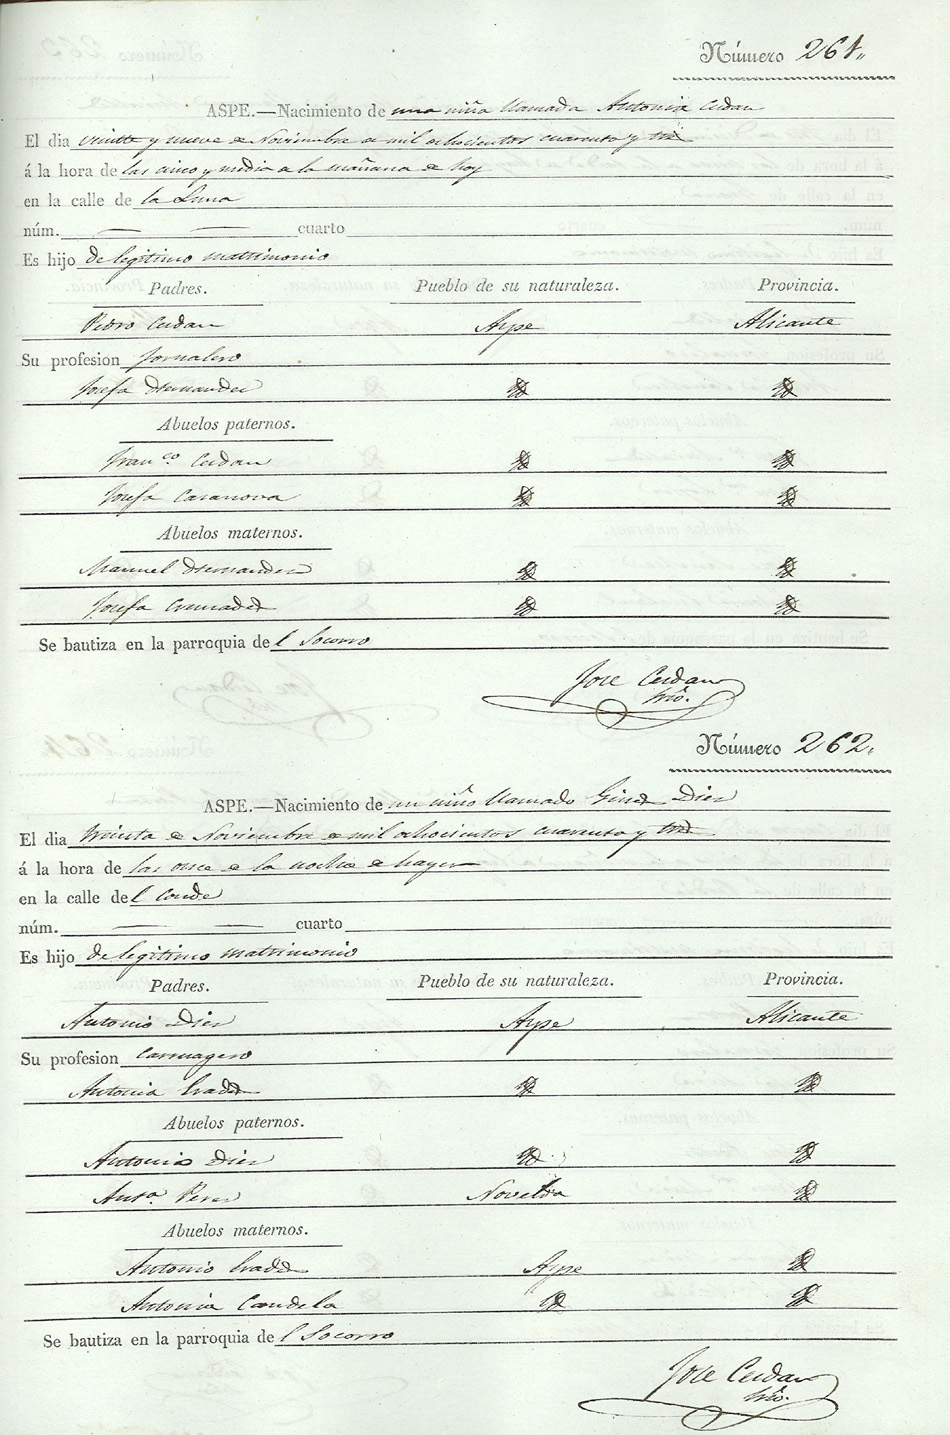 Número 261.
ASPE.—Nacimiento de una niña llamada Antonia Cerdan
El dia veinte y nueve de Noviembre de mil ochocientos cuarenta y tres
á la hora de las cinco y media de la mañana de hoy
en la calle de la Luna
núm. — — cuarto
Es hijo de legitimo matrimonio
Padres. Pueblo de su naturaleza. Provincia.
Pedro Cerdan Aspe Alicante
Su profesion Jornalero
Josefa Hernandez Id Id
Abuelos paternos.
Franco. Cerdan Id Id
Josefa Casanova Id Id
Abuelos maternos.
Manuel Hernandez Id Id
Josefa Id Id
Se bautiza en la parroquia del Socorro
Jose Cerdan
Número 262.
ASPE.—Nacimiento de un niño llamado Gines Diez
El dia treinta de Noviembre de mil ochocientos cuarenta y tres
á la hora de las once de la noche de hayer
en la calle del Conde
núm. — — cuarto
Es hijo de legitimo matrimonio
Padres. Pueblo de su naturaleza. Provincia.
Antonio Diez Aspe Alicante
Su profesion Carruagero
Antonia Id Id
Abuelos paternos.
Antonio Diez Id Id
Anta. Perez Novelda Id
Abuelos maternos.
Antonio Aspe Id
Antonia Candela Id Id
Se bautiza en la parroquia del Socorro
Jose Cerdan